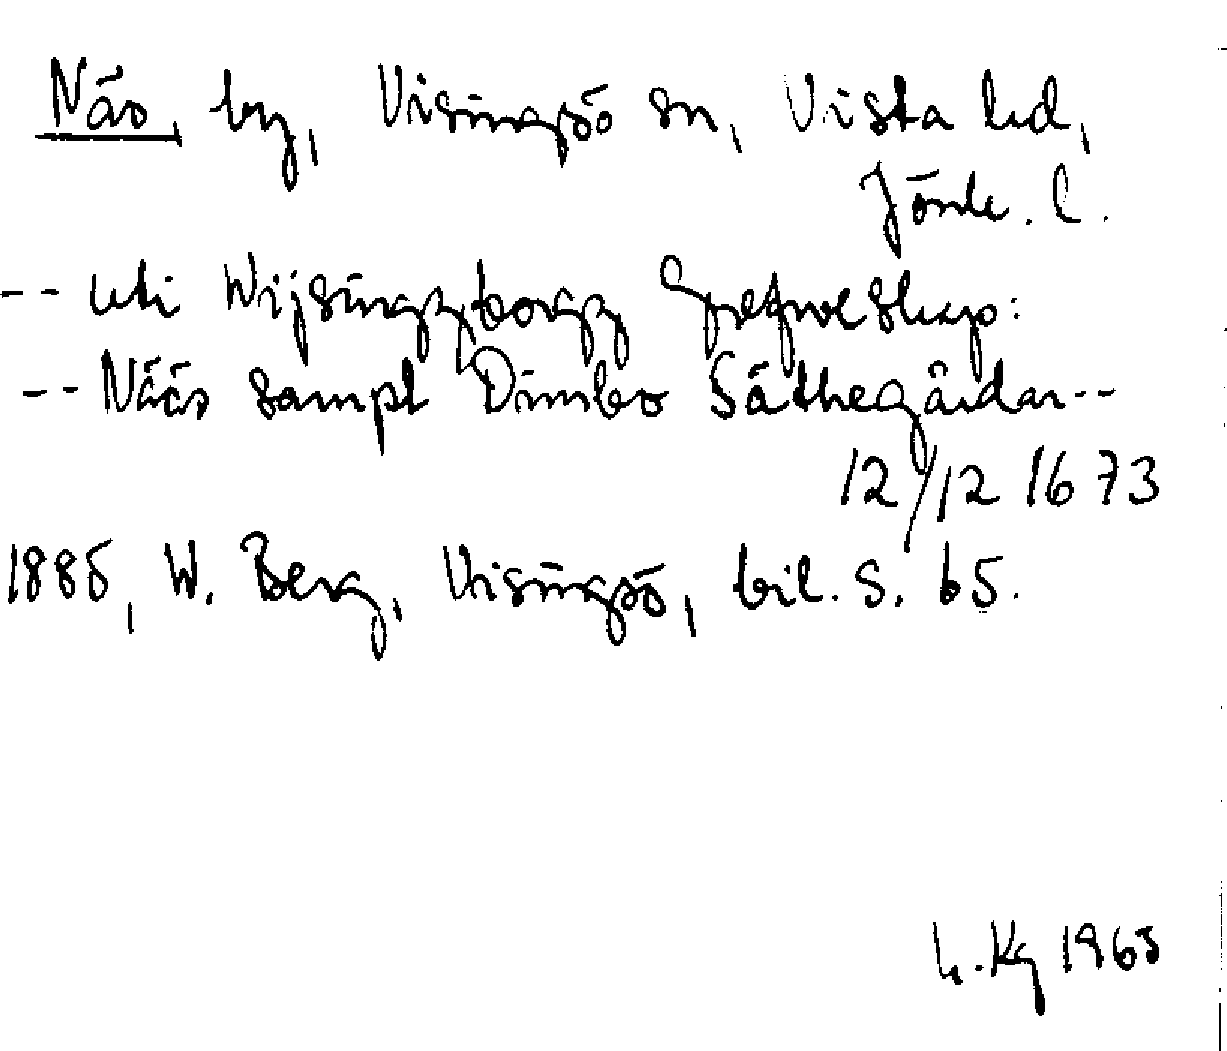 Näs, by, Visingsö sn, Vista hd,
Jönk. l.
-- uti Wijsingzborgz Grefweskap:
-- Nääs sampt Dimbo Säthegårdar--
12/12 1673
1885, W. Berg, Visingsö, bil. s. 65.
L. Kg 1965